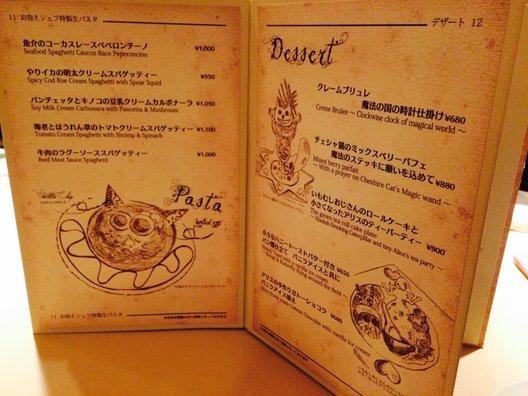 11 お抱えシェフ特製生パスタ
魚介のコーカスレースペペロンチーノ ¥1,000
Seafood Spaghetti Caucus Race Peperoncino
やりイカの明太クリームスパゲッティー ¥950
Spicy Cod Roe Cream Spaghetti with Spear Squid
パンチェッタとキノコの豆乳クリームカルボナーラ ¥1,050
Soy Milk Cream Carbonara with Pancetta & Mushroom
海老とほうれん草のトマトクリームスパゲッティー ¥1,100
Tomato Cream Spaghetti with Shrimp & Spinach
牛肉のラグーソーススパゲッティー ¥1,000
Beef Meat Sauce Spaghetti
Pasta
11 お抱えシェフ特製生パスタ
デザート 12
Dessert
クレームブリュレ
魔法の国の時計仕掛け ¥680
Creme Brulee ~ Clockwise clock of magical world ~
チェシャ猫のミックスベリーパフェ
魔法のステッキに願いを込めて ¥880
Mixed berry parfait
~ With a prayer on Cheshire Cat's Magic wand ~
いもむしおじさんのロールケーキと
小さくなったアリスのティーパーティー ¥900
The green tea roll cake plate
~ Hookah Smoking Caterpillar and tiny Alice's tea party ~
小さなハニートーストバター付き ¥650
パン蝶仕立て バニラアイスと共に
アリスの手作りガトーショコラ ¥680
バニラアイス添え